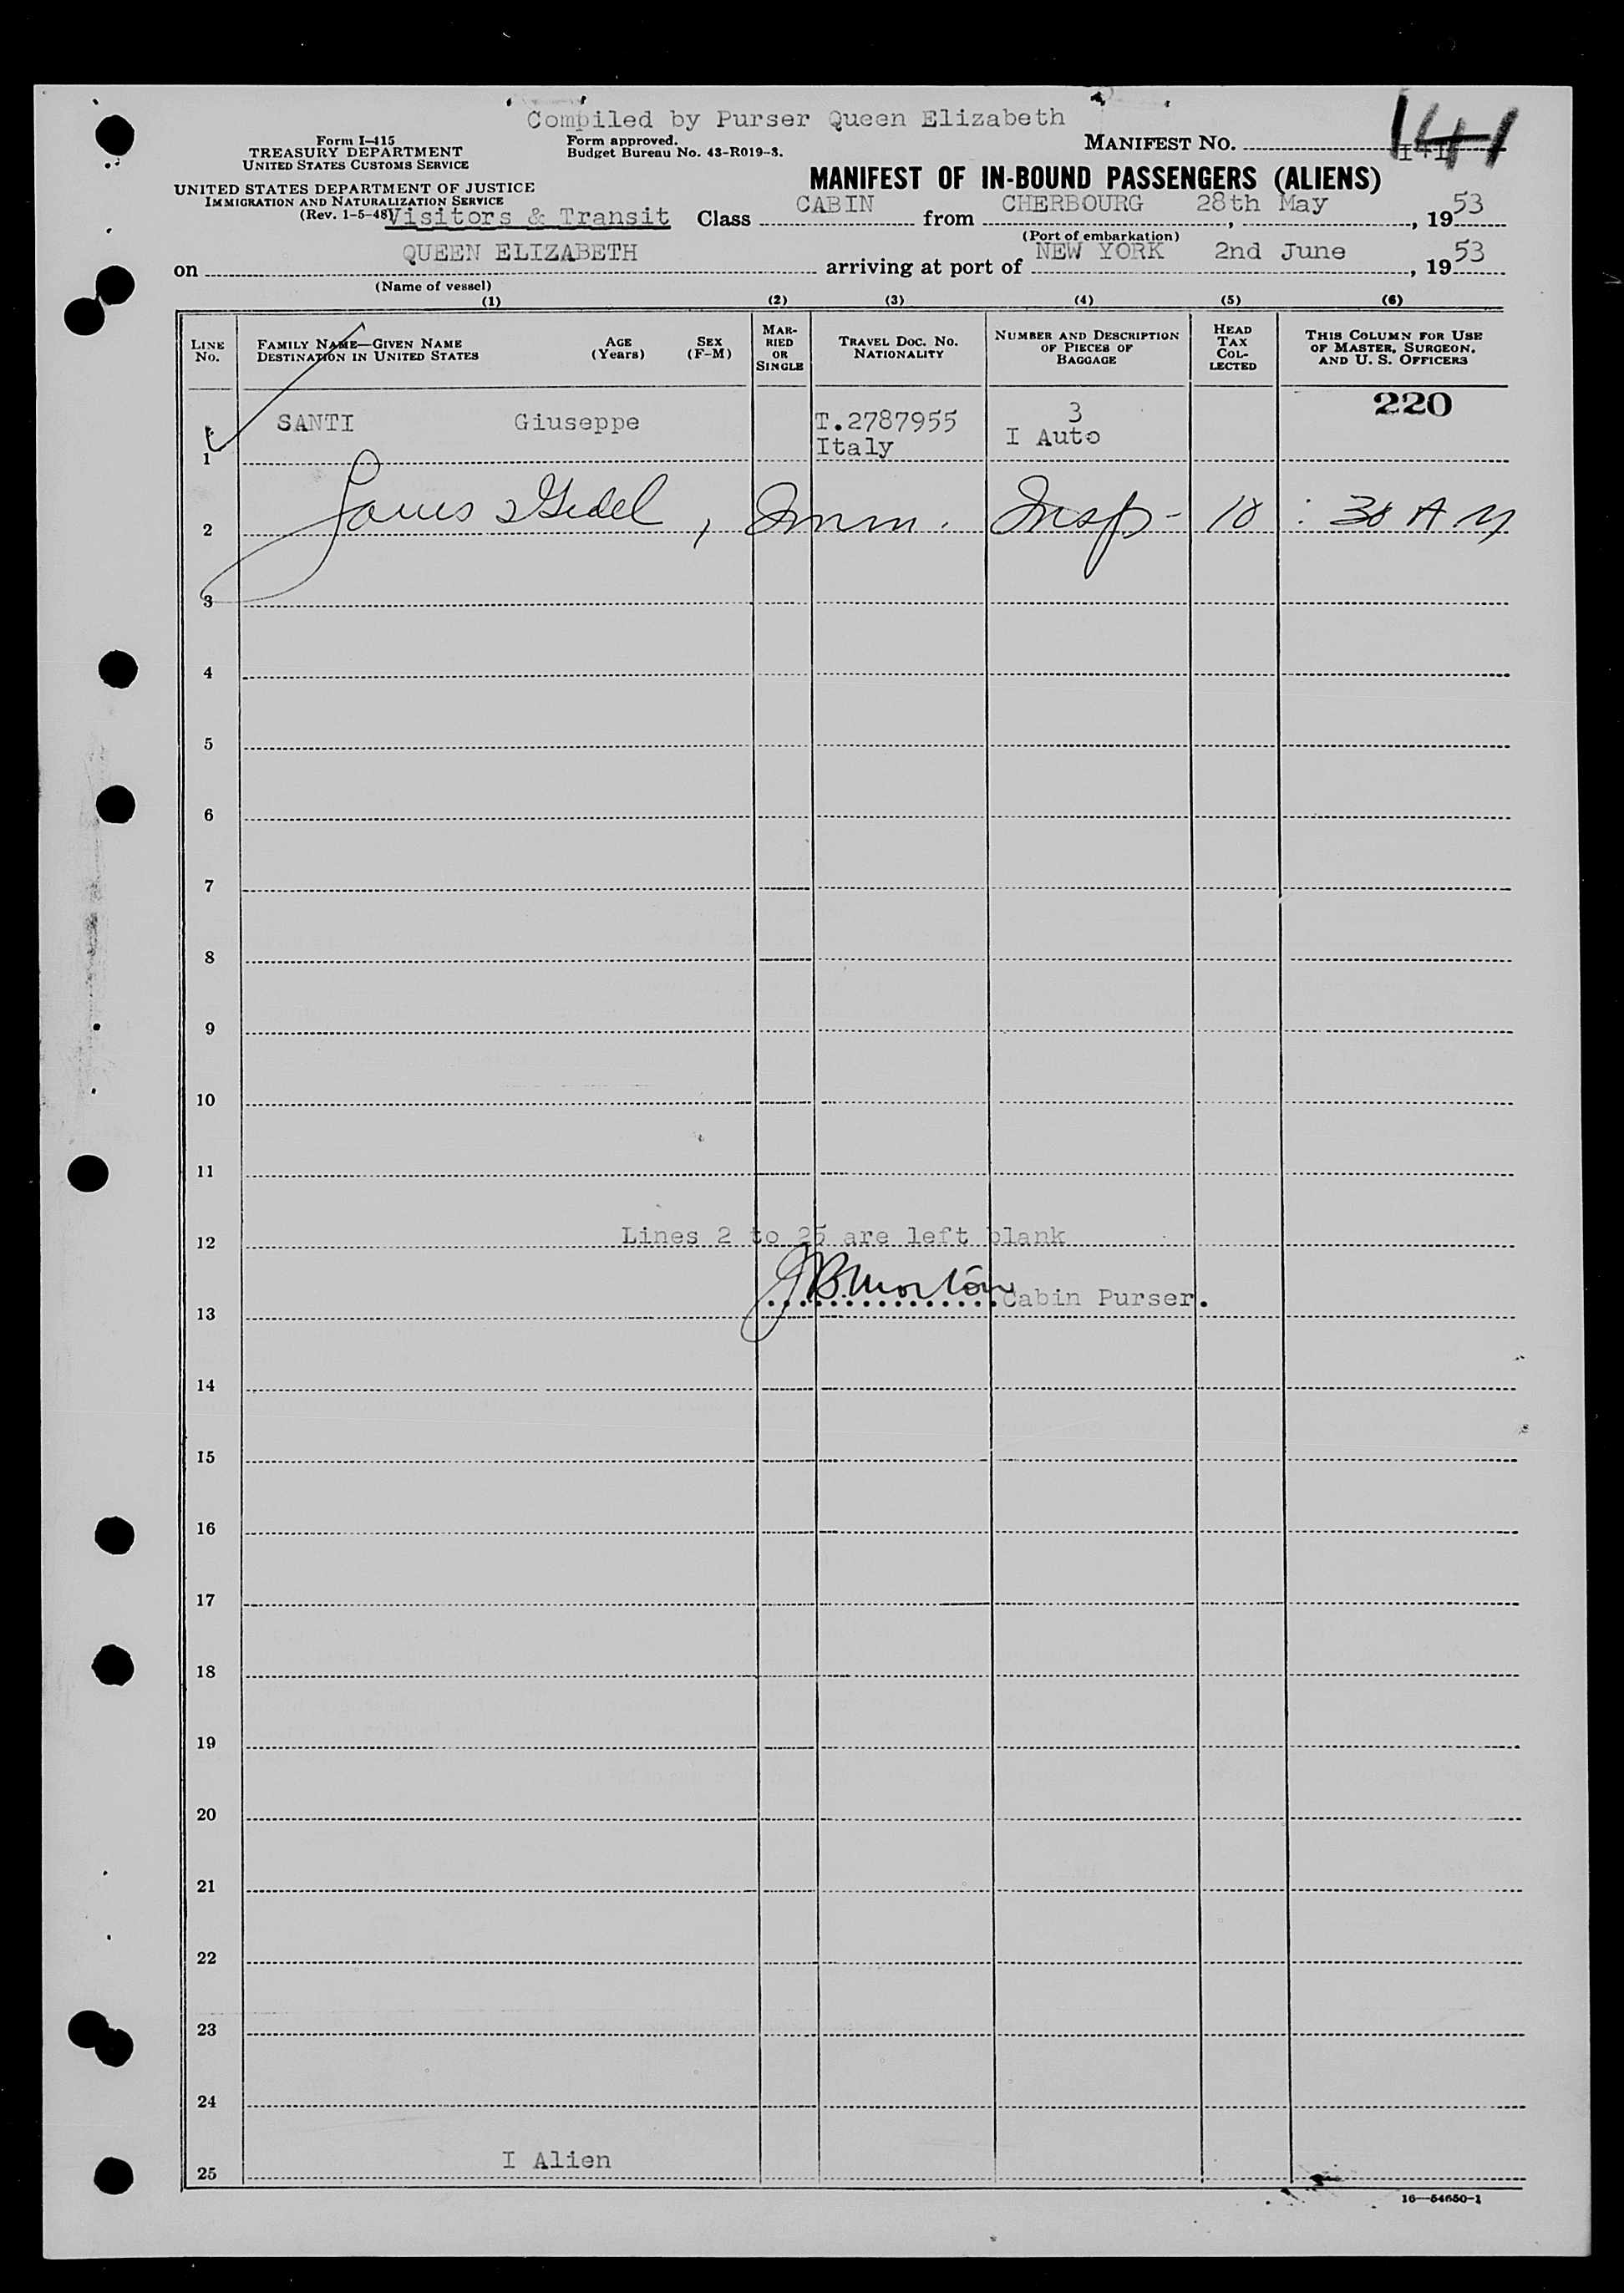 Compiled by Purser Queen Elizabeth
Form I-415
TREASURY DEPARTMENT
UNITED STATES CUSTOMS SERVICE
Form approved.
Budget Bureau No. 43-R019-3.
MANIFEST NO. 141
141
UNITED STATES DEPARTMENT OF JUSTICE
IMMIGRATION AND NATURALIZATION SERVICE
(Rev. 1-5-48)
MANIFEST OF IN-BOUND PASSENGERS (ALIENS)
Visitors & Transit Class CABIN from CHERBOURG, 28th May, 1953
(Port of embarkation)
on QUEEN ELIZABETH arriving at port of NEW YORK 2nd June, 1953
(Name of vessel)
(1) (2) (3) (4) (5) (6)
LINE NO.
FAMILY NAME—GIVEN NAME
DESTINATION IN UNITED STATES
AGE (Years)
SEX (F-M)
MARRIED OR SINGLE
TRAVEL DOC. NO.
NATIONALITY
NUMBER AND DESCRIPTION OF PIECES OF BAGGAGE
HEAD TAX COLLECTED
THIS COLUMN FOR USE OF MASTER, SURGEON, AND U. S. OFFICERS
220
1 SANTI Giuseppe T.2787955 3
Italy I Auto
2 Imm. Insp - 10:30 AM
3
4
5
6
7
8
9
10
11
12 Lines 2 to 25 are left blank
13 J B Morton Cabin Purser.
14
15
16
17
18
19
20
21
22
23
24
25 I Alien
16—54650-1